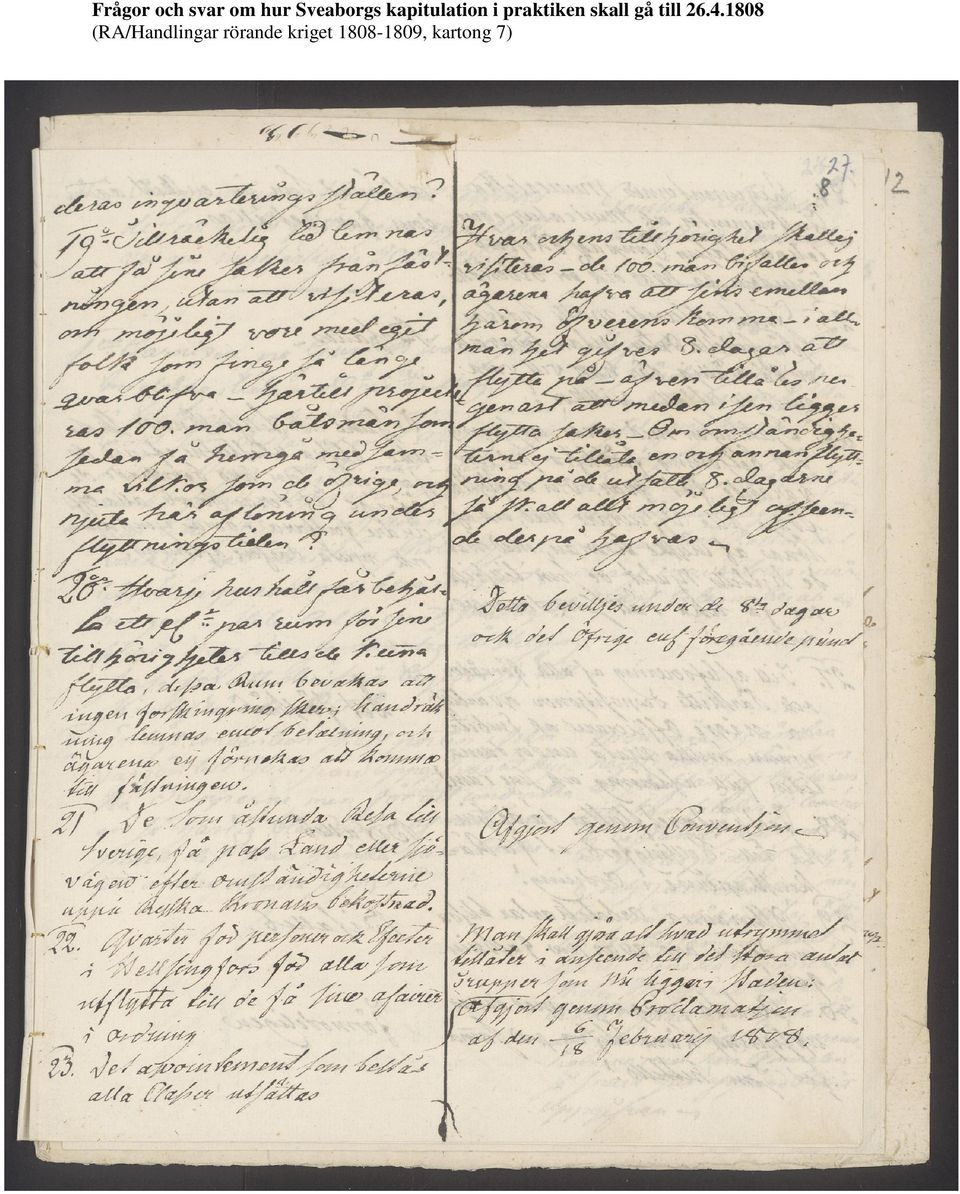 Frågor och svar om hur Sveaborgs kapitulation i praktiken skall gå till 26.4.1808
(RA/Handlingar rörande kriget 1808-1809, kartong 7)
27.
8
12
deras inqvarterings ställen?
19º Tillräckelig tid lemnas
att få sine saker från fäst-
ningen, utan att visiteras,
om möjeligt vore med eget
folck som finge så länge
qvarblifva – härtill projecte-
ras 100. man båtsmän som
sedan få hemgå med sam-
ma vilkor som de öfrige, och
njuta här aflöning under
flyttningstiden?
20. Hvarje hushåll får behål-
la ett el. par rum för sine
tillhörigheter tills de kunna
flytta, dessa Rum bevakas att
ingen förskingring sker; handräck
ning lemnas emot betalning, och
ägarena ej förnekas att komma
till fästningen.
21 De som åstunda Resa till
Sverige, få pass Land eller sjö-
vägen efter omständigheterne
uppå Ryska Kronans bekostnad.
22. Qvarter för personer och Effecter
i Hellsingfors för alla som
utflytta till de få sina afairer
i ordning
23. Det apointement som bestås
alla Classer utsättas
Hvar och ens tillhörighet skall ej
visiteras – de 100. man bifalles och
ägarena hafva att sins emellan
härom öfverenskomma – i all-
mänhet gifves 8. dagar att
flytta på – äfven tillåtes nu
genast att medan isen ligger
flytta saker – Om omständighe-
terna ej tillåta en och annan flytt-
ning på de utsatte 8. dagarne
så skall allt möjeligt afseen-
de derpå hafvas –
Detta beviljes under de 8ta dagar
och det öfrige enl. föregående punct
Afgjort genom Convention
Man skall göra allt hvad utrymmet
tillåter i anseende till det stora antal
trupper som nu ligger i staden:
Afgjort genom Proclamation
af den 6/18 Februarij 1808.